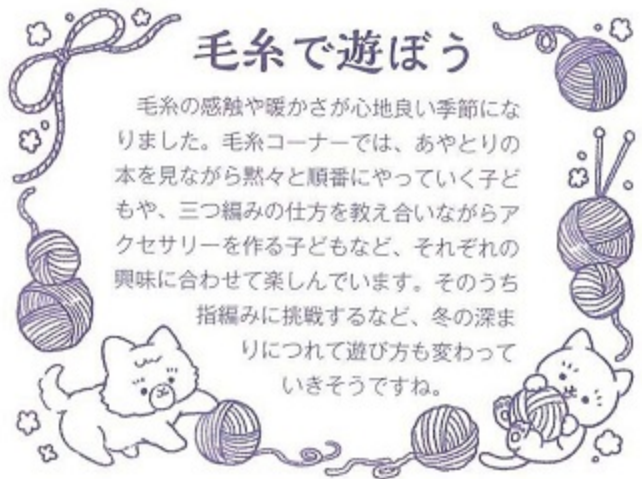 毛糸で遊ぼう
毛糸の感触や暖かさが心地良い季節にな
りました。毛糸コーナーでは、あやとりの
本を見ながら黙々と順番にやっていく子ど
もや、三つ編みの仕方を教え合いながらア
クセサリーを作る子どもなど、それぞれの
興味に合わせて楽しんでいます。そのうち
指編みに挑戦するなど、冬の深ま
りにつれて遊び方も変わって
いきそうですね。